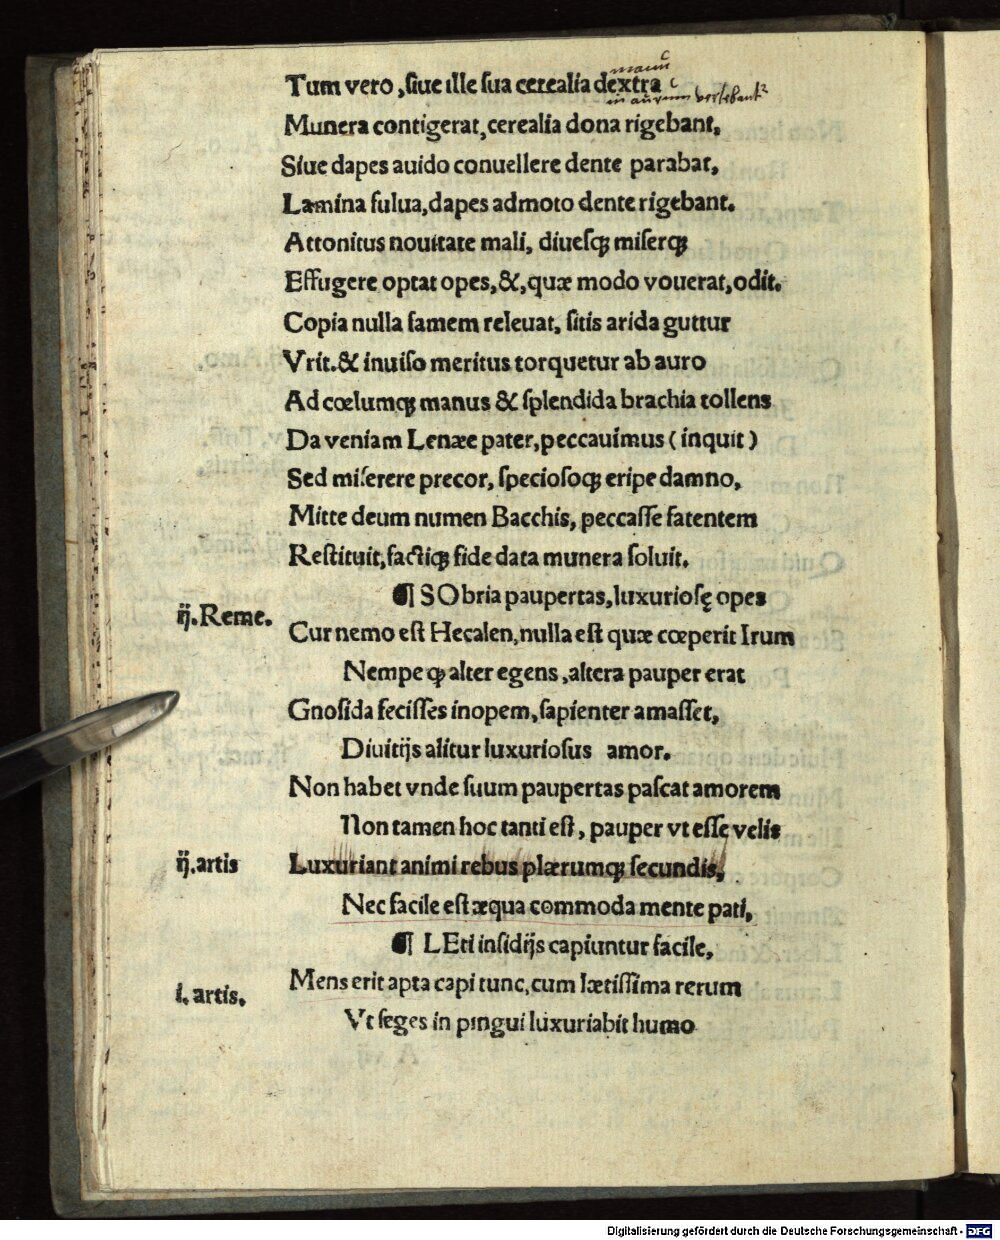 manu
Tum vero, ſiue ille ſua cerealia dextra
in aurum vertebant
Munera contigerat, cerealia dona rigebant,
Siue dapes auido conuellere dente parabat,
Lamina fulua, dapes admoto dente rigebant.
Attonitus nouitate mali, diueſqꝫ miſerqꝫ
Effugere optat opes, &, quæ modo vouerat, odit.
Copia nulla famem releuat, ſitis arida guttur
Vrit. & inuiſo meritus torquetur ab auro
Ad cœlumqꝫ manus & ſplendida brachia tollens
Da veniam Lenæe pater, peccauimus ( inquit )
Sed miſerere precor, ſpecioſoqꝫ eripe damno,
Mitte deum numen Bacchis, peccaſſe fatentem
Reſtituit, factiqꝫ fide data munera ſoluit.
¶ SObria paupertas, luxurioſę opes
ij. Reme.
Cur nemo eſt Hecalen, nulla eſt quæ cœperit Irum
Nempe ꝙ alter egens, altera pauper erat
Gnoſida feciſſes inopem, ſapienter amaſſet,
Diuitijs alitur luxurioſus amor.
Non habet vnde ſuum paupertas paſcat amorem
Non tamen hoc tanti eſt, pauper vt eſſe velis
ij. artis
Luxuriant animi rebus plærumqꝫ ſecundis,
Nec facile eſt æqua commoda mente pati,
¶ LEti inſidijs capiuntur facile,
Mens erit apta capi tunc, cum lætiſſima rerum
i. artis.
Vt ſeges in pingui luxuriabit humo
Digitalisierung gefördert durch die Deutsche Forschungsgemeinschaft - DFG